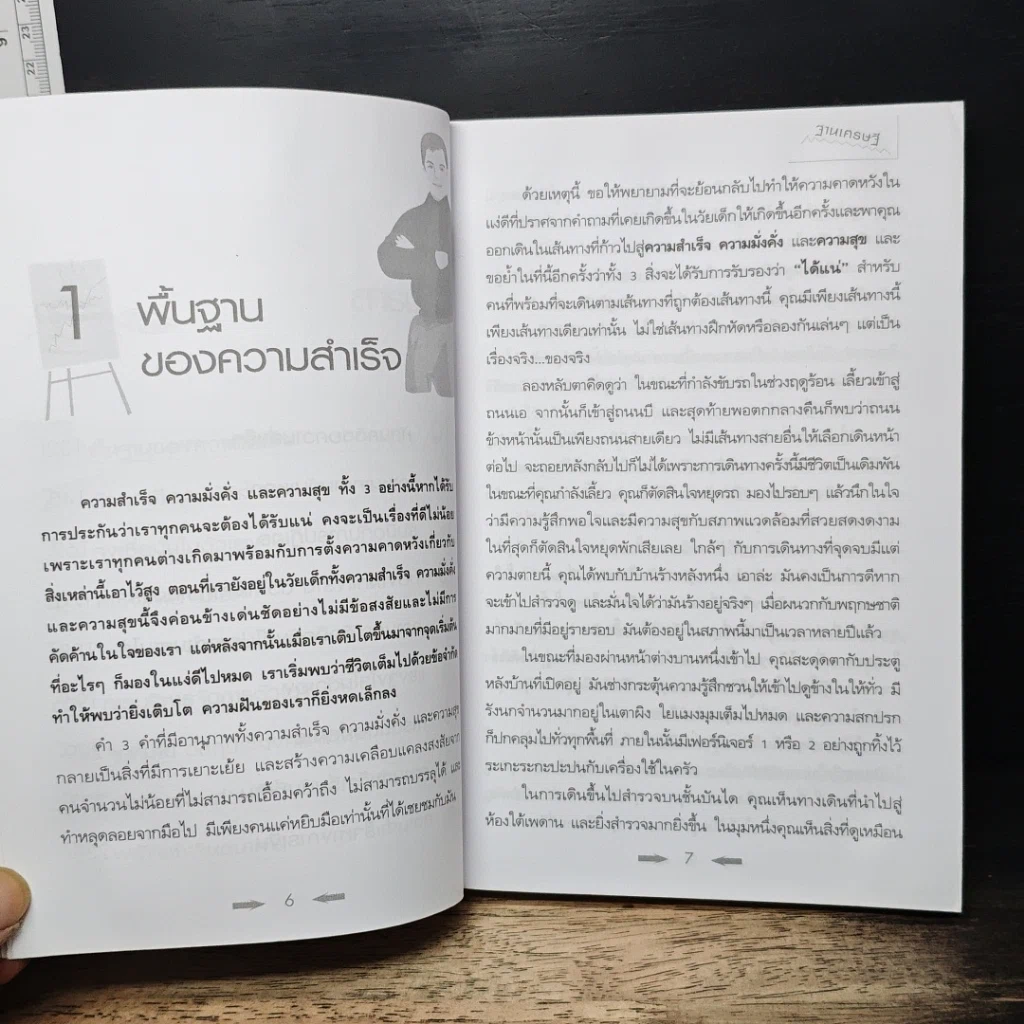 9
23
22
1
พื้นฐาน
ของความสำเร็จ
ความสำเร็จ ความมั่งคั่ง และความสุข ทั้ง 3 อย่างนี้หากได้รับ
การประกันว่าเราทุกคนจะต้องได้รับแน่ คงจะเป็นเรื่องที่ดีไม่น้อย
เพราะเราทุกคนต่างเกิดมาพร้อมกับการตั้งความคาดหวังเกี่ยวกับ
สิ่งเหล่านี้เอาไว้สูง ตอนที่เรายังอยู่ในวัยเด็กทั้งความสำเร็จ ความมั่งคั่ง
และความสุขนี้จึงค่อนข้างเด่นชัดอย่างไม่มีข้อสงสัยและไม่มีการ
คัดค้านในใจของเรา แต่หลังจากนั้นเมื่อเราเติบโตขึ้นมาจากจุดเริ่มต้น
ที่อะไรๆ ก็มองในแง่ดีไปหมด เราเริ่มพบว่าชีวิตเต็มไปด้วยข้อจำกัด
ทำให้พบว่ายิ่งเติบโต ความฝันของเราก็ยิ่งหดเล็กลง
คำ 3 คำที่มีอานุภาพทั้งความสำเร็จ ความมั่งคั่ง และความสุข
กลายเป็นสิ่งที่มีการเยาะเย้ย และสร้างความเคลือบแคลงสงสัยจาก
คนจำนวนไม่น้อยที่ไม่สามารถเอื้อมคว้าถึง ไม่สามารถบรรลุได้ และ
ทำหลุดลอยจากมือไป มีเพียงคนแค่หยิบมือเท่านั้นที่ได้เชยชมกับมัน
6
ฐานเศรษฐี
ด้วยเหตุนี้ ขอให้พยายามที่จะย้อนกลับไปทำให้ความคาดหวังใน
แง่ดีที่ปราศจากคำถามที่เคยเกิดขึ้นในวัยเด็กให้เกิดขึ้นอีกครั้งและพาคุณ
ออกเดินในเส้นทางที่ก้าวไปสู่ความสำเร็จ ความมั่งคั่ง และความสุข และ
ขอย้ำในที่นี้อีกครั้งว่าทั้ง 3 สิ่งจะได้รับการรับรองว่า “ได้แน่” สำหรับ
คนที่พร้อมที่จะเดินตามเส้นทางที่ถูกต้องเส้นทางนี้ คุณมีเพียงเส้นทางนี้
เพียงเส้นทางเดียวเท่านั้น ไม่ใช่เส้นทางฝึกหัดหรือลองกันเล่นๆ แต่เป็น
เรื่องจริง...ของจริง
ลองหลับตาคิดดูว่า ในขณะที่กำลังขับรถในช่วงฤดูร้อน เลี้ยวเข้าสู่
ถนนเอ จากนั้นก็เข้าสู่ถนนบี และสุดท้ายพอตกกลางคืนก็พบว่าถนน
ข้างหน้านั้นเป็นเพียงถนนสายเดียว ไม่มีเส้นทางสายอื่นให้เลือกเดินหน้า
ต่อไป จะถอยหลังกลับไปก็ไม่ได้เพราะการเดินทางครั้งนี้มีชีวิตเป็นเดิมพัน
ในขณะที่คุณกำลังเลี้ยว คุณก็ตัดสินใจหยุดรถ มองไปรอบๆ แล้วนึกในใจ
ว่ามีความรู้สึกพอใจและมีความสุขกับสภาพแวดล้อมที่สวยสดงดงาม
ในที่สุดก็ตัดสินใจหยุดพักเสียเลย ใกล้ๆ กับการเดินทางที่จุดจบมีแต่
ความตายนี้ คุณได้พบกับบ้านร้างหลังหนึ่ง เอาล่ะ มันคงเป็นการดีหาก
จะเข้าไปสำรวจดู และมั่นใจได้ว่ามันร้างอยู่จริงๆ เมื่อผนวกกับพฤกษชาติ
มากมายที่มีอยู่รายรอบ มันต้องอยู่ในสภาพนี้มาเป็นเวลาหลายปีแล้ว
ในขณะที่มองผ่านหน้าต่างบานหนึ่งเข้าไป คุณสะดุดตากับประตู
หลังบ้านที่เปิดอยู่ มันช่างกระตุ้นความรู้สึกชวนให้เข้าไปดูข้างในให้ทั่ว มี
รังนกจำนวนมากอยู่ในเตาผิง ใยแมงมุมเต็มไปหมด และความสกปรก
ก็ปกคลุมไปทั่วทุกพื้นที่ ภายในนั้นมีเฟอร์นิเจอร์ 1 หรือ 2 อย่างถูกทิ้งไว้
ระเกะระกะปะปนกับเครื่องใช้ในครัว
ในการเดินขึ้นไปสำรวจบนชั้นบันได คุณเห็นทางเดินที่นำไปสู่
ห้องใต้เพดาน และยิ่งสำรวจมากยิ่งขึ้น ในมุมหนึ่งคุณเห็นสิ่งที่ดูเหมือน
7